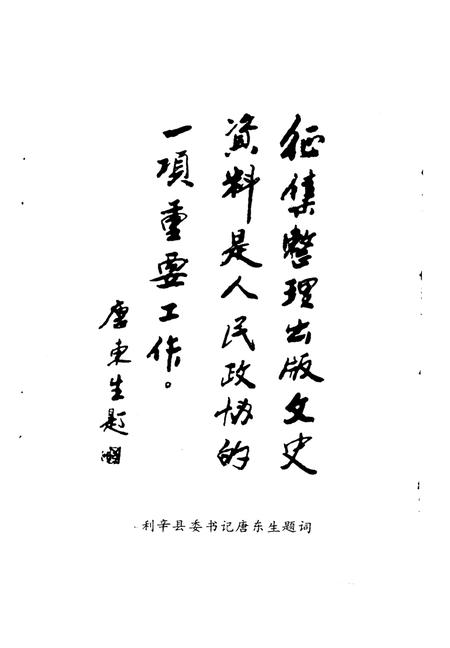 征集整理出版文史
資料是人民政协的
一項重要工作。
唐东生題
利辛县委书记唐东生题词